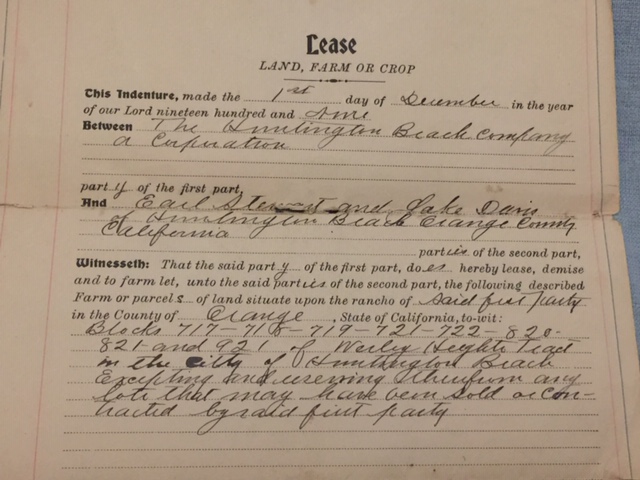 Lease
LAND, FARM OR CROP
This Indenture, made the 1st day of December in the year
of our Lord nineteen hundred and
Between The Huntington Beach Company
a Corporation
party of the first part,
And Earl Stewart and Jake Davis
of Huntington Beach Orange County
California
parties of the second part,
Witnesseth: That the said party of the first part, does hereby lease, demise
and to farm let, unto the said parties of the second part, the following described
Farm or parcels of land situate upon the rancho of said first party
in the County of Orange, State of California, to-wit:
Blocks 717-718-719-721-722-820-
821-and 921 of Wesley Heights Tract
in the city of Huntington Beach
Excepting and reserving therefrom any
lots that may have been sold or con-
tracted by said first party